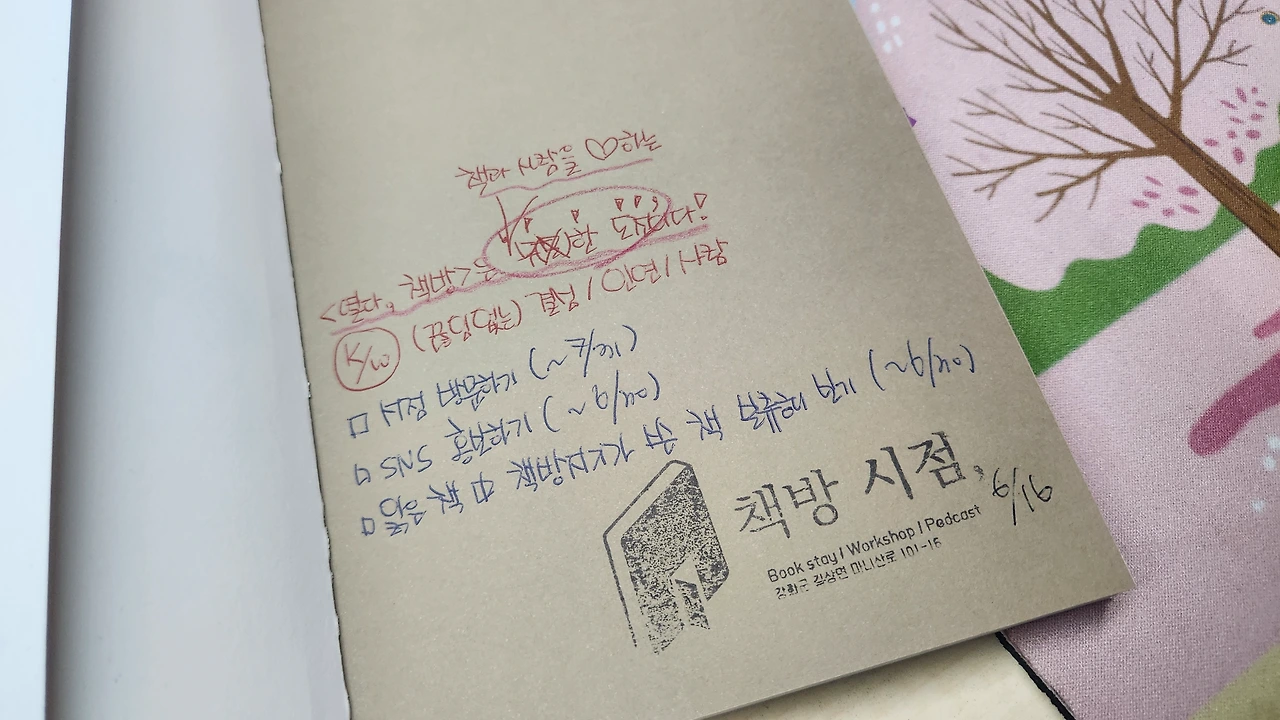 책과 사람을 ♡하는
<열다, 책방>은 한 도전이다!
(끝없는) 결심 / 인연 / 사람
□ 서점 방문하기 (~7/31)
□ SNS 홍보하기 (~6/20)
□ 읽은 책 中 책방지기가 쓴 책 분류해 보기 (~6/20)
책방 시점,
6/16
Book stay / Workshop / Podcast
강화군 길상면 마니산로 101-16